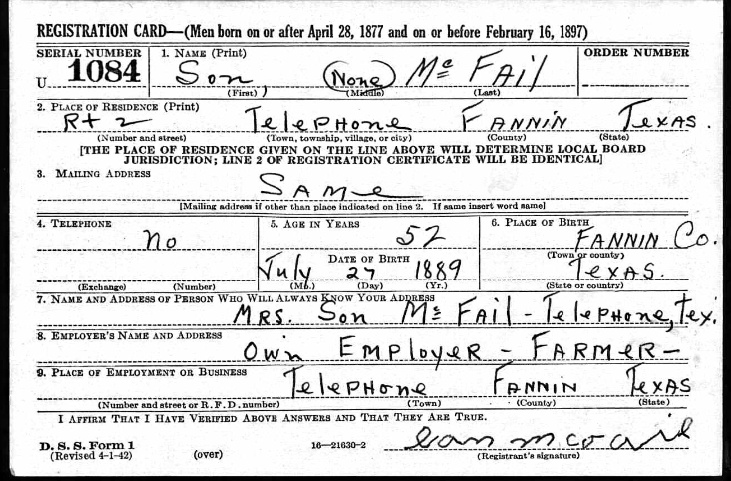 REGISTRATION CARD—(Men born on or after April 28, 1877 and on or before February 16, 1897)
SERIAL NUMBER 1. NAME (Print) ORDER NUMBER
U 1084 Son (None) Mc FAil
(First) (Middle) (Last)
2. PLACE OF RESIDENCE (Print)
Rt 2 TelePHone FANNIN TexAS.
(Number and street) (Town, township, village, or city) (County) (State)
[THE PLACE OF RESIDENCE GIVEN ON THE LINE ABOVE WILL DETERMINE LOCAL BOARD
JURISDICTION; LINE 2 OF REGISTRATION CERTIFICATE WILL BE IDENTICAL]
3. MAILING ADDRESS
SAMe
[Mailing address if other than place indicated on line 2. If same insert word same]
4. TELEPHONE 5. AGE IN YEARS 6. PLACE OF BIRTH
no 52 FANNIN Co.
DATE OF BIRTH (Town or county)
July 27 1889 TexAS.
(Exchange) (Number) (Mo.) (Day) (Yr.) (State or country)
7. NAME AND ADDRESS OF PERSON WHO WILL ALWAYS KNOW YOUR ADDRESS
MRS. Son Mc FAil - TelePHone, Tex.
8. EMPLOYER'S NAME AND ADDRESS
Own EMPloyeR - FARMeR -
9. PLACE OF EMPLOYMENT OR BUSINESS
TelePHone FANNIN TexAS
(Number and street or R. F. D. number) (Town) (County) (State)
I AFFIRM THAT I HAVE VERIFIED ABOVE ANSWERS AND THAT THEY ARE TRUE.
D. S. S. Form 1
(Revised 4-1-42) (over) 16—21630-2
(Registrant's signature)